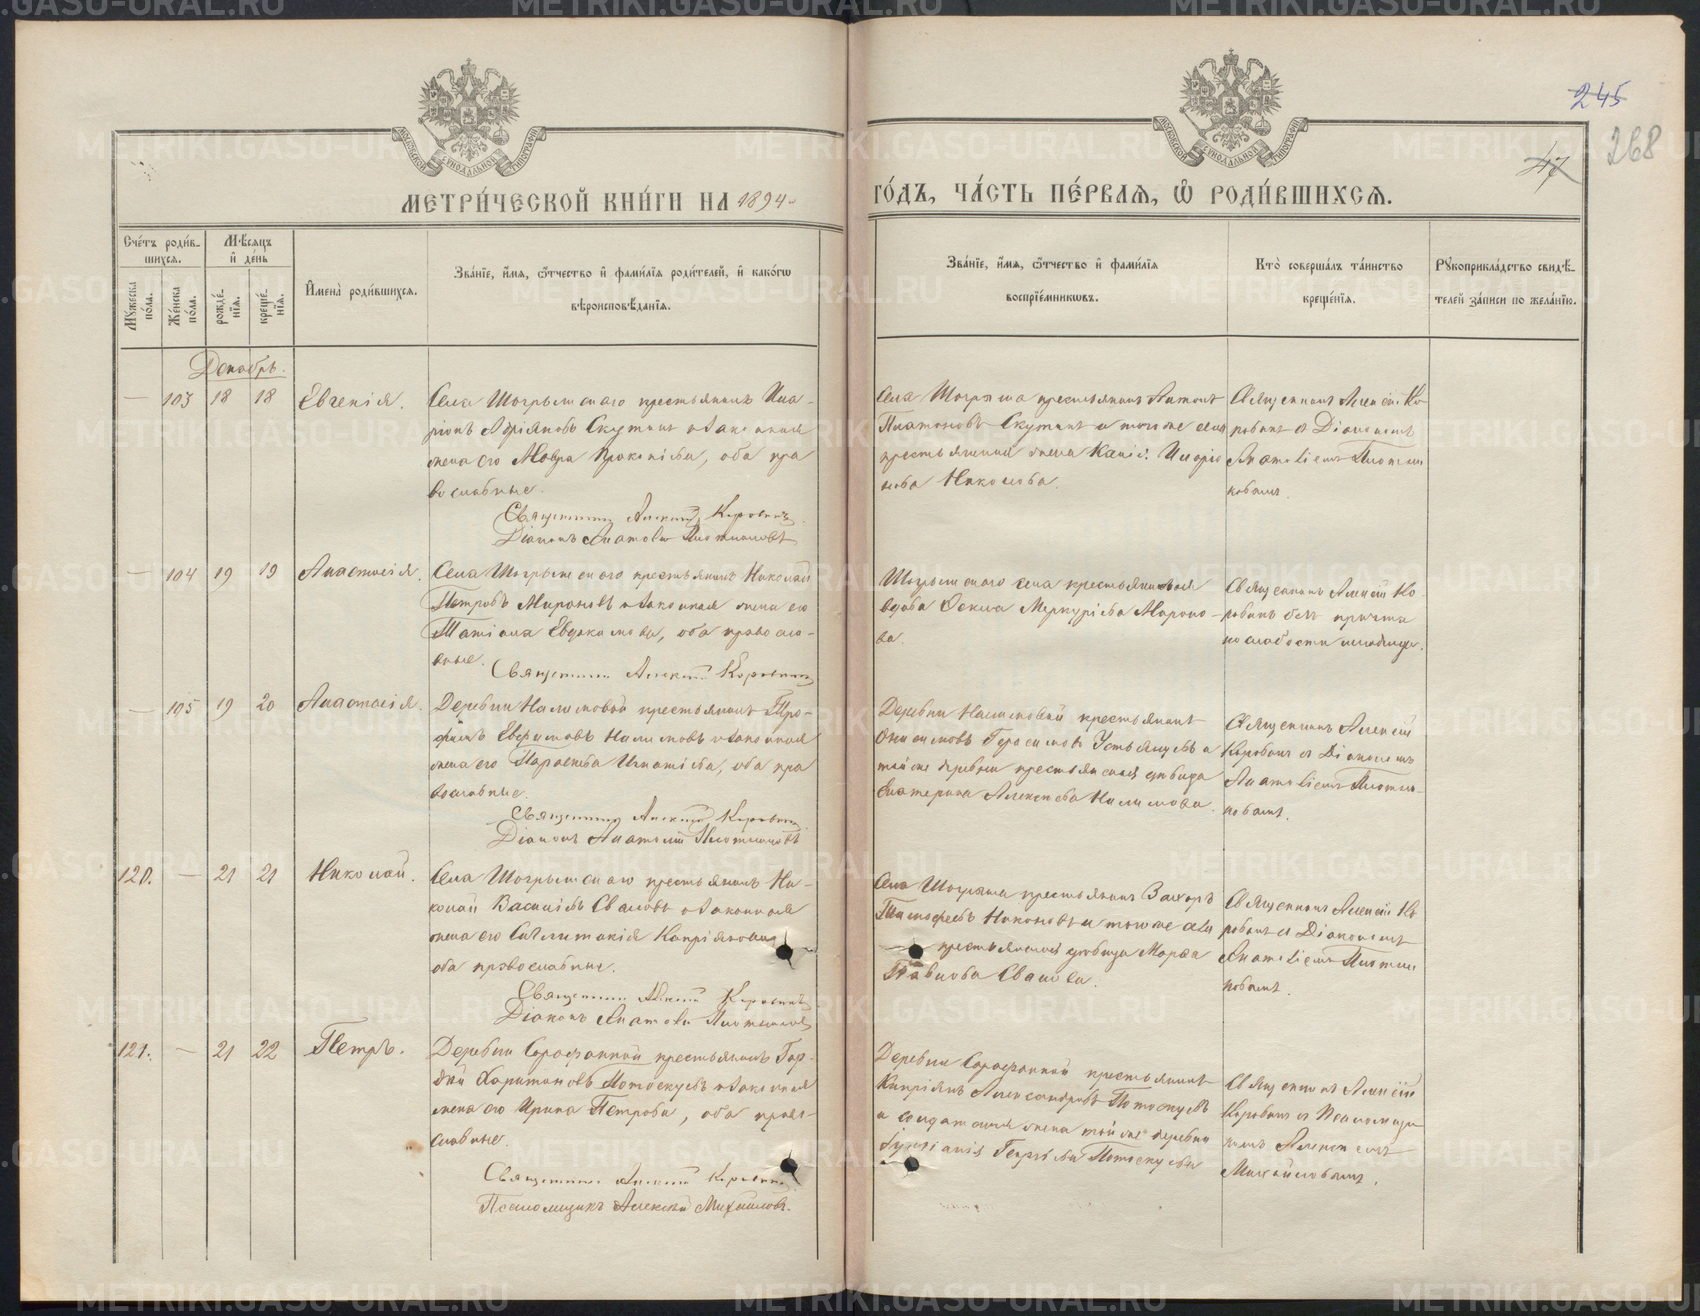 245
268
47
МЕТРИ́ЧЕСКОЙ КНИ́ГИ НА 1894
ГО́ДЪ, ЧА́СТЬ ПЕ́РВАѦ, Ѡ҆ РОДИ́ВШИХСѦ.
Сче́тъ роди́в-
шихсѧ.
Мꙋ́жеска по́ла.
Же́нска по́ла.
Мѣ́сѧцъ
и҆ де́нь
рожде́-
нїѧ.
креще́-
нїѧ.
И҆мена̀ роди́вшихсѧ.
Зва́нїе, и҆́мѧ, ѻ҆́тчество и҆ фами́лїѧ роди́телей, и҆ како́гѡ
вѣроисповѣ́данїѧ.
Зва́нїе, и҆́мѧ, ѻ҆́тчество и҆ фами́лїѧ
воспрїе́мникѡвъ.
Кто̀ соверша́лъ та́инство
креще́нїѧ.
Рꙋкоприкла́дство свидѣ́-
телей за́писи по жела́нїю.
Декабрь.
— 103 18 18 Евгенія.
Села Шогрышскаго крестьянинъ Ила-
ріонъ Адріановъ Скутинъ и законная
жена его Мавра Прокопіева, оба пра
вославные.
Священникъ Алексій Коровинъ
Діаконъ Анатолій Плотниковъ
Села Шогриша крестьянинъ Антонъ
Платоновъ Скутинъ и того же села
крестьянина жена
нова Никонова.
Священникъ Алексій Ко-
ровинъ съ Діакономъ
Анатоліемъ Плотни
ковымъ.
— 104 19 19 Анастасія.
Села Шогрышскаго крестьянинъ Николай
Петровъ Мироновъ и законная жена его
Татіана Евдокимова, оба правосла-
вные.
Священникъ Алексій Коровинъ
Шогрышскаго села крестьянская
вдова Меркуріева Мироно-
ва.
Священникъ Алексій Ко-
ровинъ безъ причта
по слабости младенца.
— 105 19 20 Анастасія.
Деревни Налимовой крестьянинъ Тро-
фимъ Евфимовъ Налимовъ и законная
жена его Параскева Игнатіева, оба пра
вославные.
Священникъ Алексій Коровинъ
Діаконъ Анатолій Плотниковъ
Деревни Налимовой крестьянинъ
Онисимовъ Герасимовъ и
той же деревни крестьянская дѣвица
Екатерина Алексѣева Налимова.
Священникъ Алексій
Коровинъ съ Діакономъ
Анатоліемъ Плотни-
ковымъ.
120. — 21 21 Николай.
Села Шогрышскаго крестьянинъ Ни-
колай Василіевъ Сваловъ и законная
жена его Сѵнклитикія Капріянова
оба православные.
Священникъ Алексій Коровинъ
Діаконъ Анатолій Плотниковъ
Села Шогриша крестьянинъ Захаръ
Тимофеевъ Никоновъ и того же села
крестьянская дѣвица Марѳа
Павлова Свалова.
Священникъ Алексій Ко
ровинъ съ Діакономъ
Анатоліемъ Плотни
ковымъ.
121. — 21 22 Петръ.
Деревни Сарафанной крестьянинъ Гор-
дѣй Харитоновъ Потоскуевъ и законная
жена его Ирина Петрова, оба право-
славные.
Священникъ Алексій Коровинъ
Псаломщикъ Алексѣй Михайловъ.
Деревни Сарафанной крестьянинъ
Капріянъ Александровъ Потоскуевъ
и солдатская жена той же деревни
Георгіева Потоскуева
Священникъ Алексій
Коровинъ съ Псаломщи
комъ Алексѣемъ
Михайловымъ.